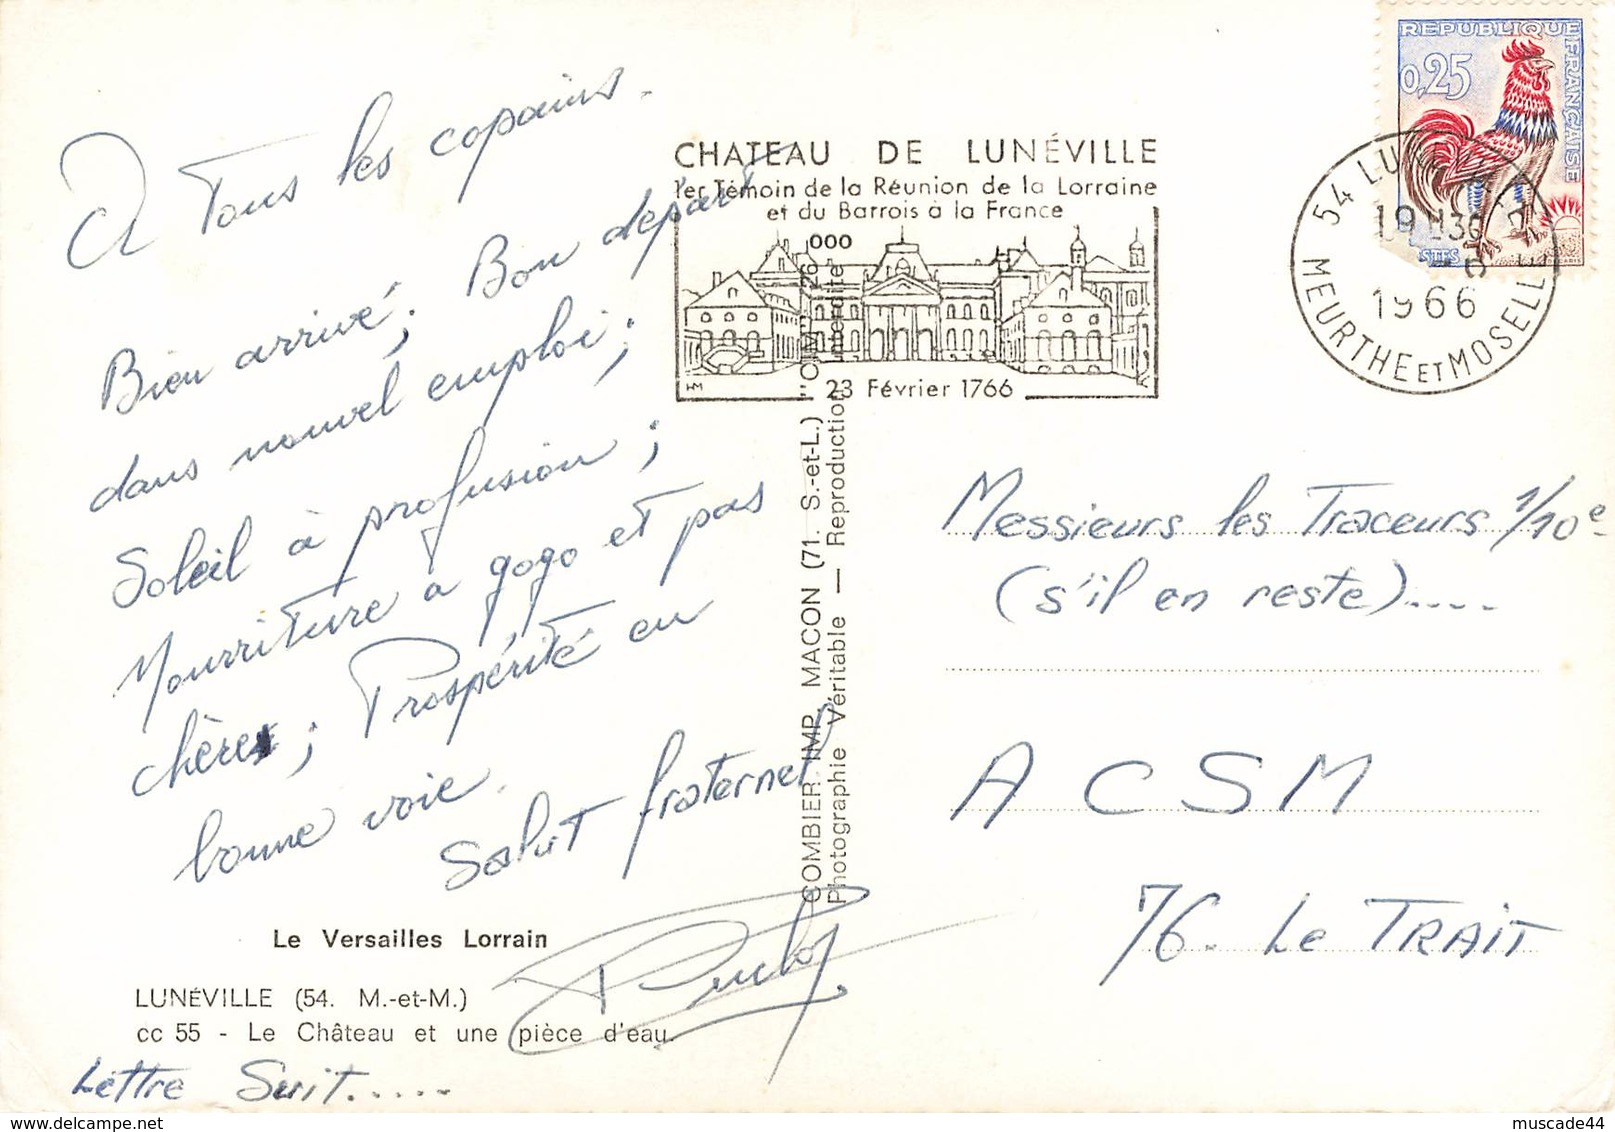 A Tous les copains.
Bien arrivé; Bon départ
dans nouvel emploi;
Soleil à profusion;
Nourriture a gogo et pas
chères; Prospérité en
bonne voie.
Salut fraternel
Le Versailles Lorrain
LUNÉVILLE (54. M.-et-M.)
cc 55 - Le Château et une pièce d'eau.
Lettre Suit.....
COMBIER IMP. MACON (71. S.-et-L.) "CIM"
Photographie Véritable — Reproduction interdite
CHATEAU DE LUNÉVILLE
1er Témoin de la Réunion de la Lorraine
et du Barrois à la France
000
23 Février 1766
REPUBLIQUE FRANÇAISE
0,25
54 LUNEVILLE
19 H30
1966
MEURTHE ET MOSELLE
Messieurs les Traceurs 1/10e
(s'il en reste).....
A C S M
76. Le TRAIT
muscade44